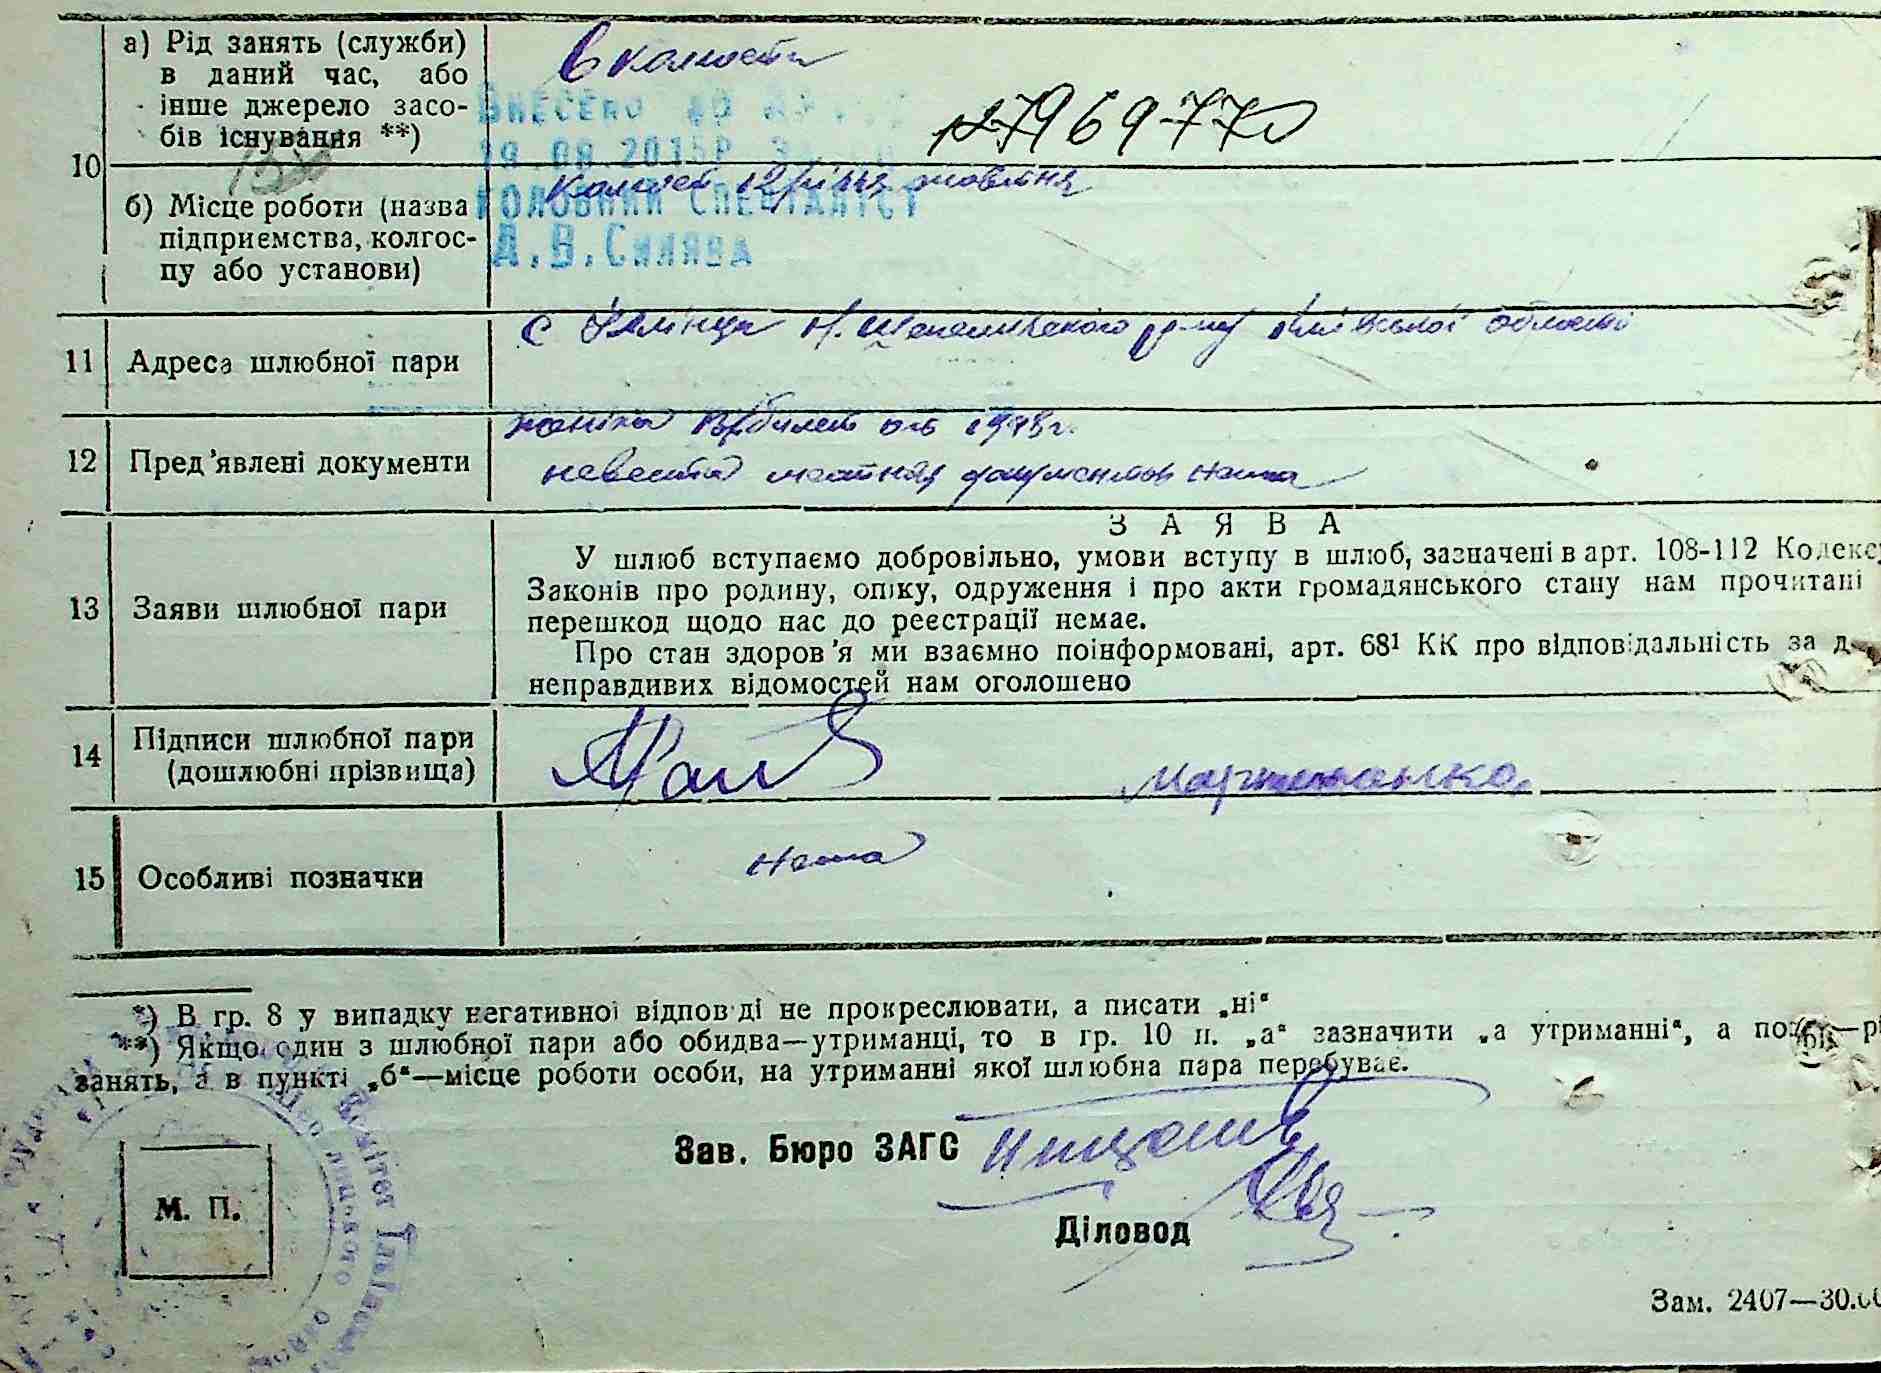 10
а) Рід занять (служби)
в даний час, або
інше джерело засо-
бів існування **)
В колгоспі
Внесено до
19.09.2015р
Головний спеціаліст
А.В.Силява
7969770
б) Місце роботи (назва
підприємства, колгос-
пу або установи)
Колгосп 12 річчя жовтня
11 Адреса шлюбної пари
с Іллінці Н. Шепелицького р-ну Київської області
12 Пред'явлені документи
жениха В/билет 1943г.
невеста документов нема
13 Заяви шлюбної пари
ЗАЯВА
У шлюб вступаємо добровільно, умови вступу в шлюб, зазначені в арт. 108-112 Кодексу
Законів про родину, опіку, одруження і про акти громадянського стану нам прочитані
перешкод щодо нас до реєстрації немає.
Про стан здоров'я ми взаємно поінформовані, арт. 68¹ КК про відповідальність за д
неправдивих відомостей нам оголошено
14 Підписи шлюбної пари
(дошлюбні прізвища)
15 Особливі позначки
нема
*) В гр. 8 у випадку негативної відповіді не прокреслювати, а писати „ні“
**) Якщо один з шлюбної пари або обидва—утриманці, то в гр. 10 п. „а“ зазначити „а утриманні“, а по —рі
занять, а в пункті „б“—місце роботи особи, на утриманні якої шлюбна пара перебуває.
Зав. Бюро ЗАГС
Діловод
М. П.
Зам. 2407—30.